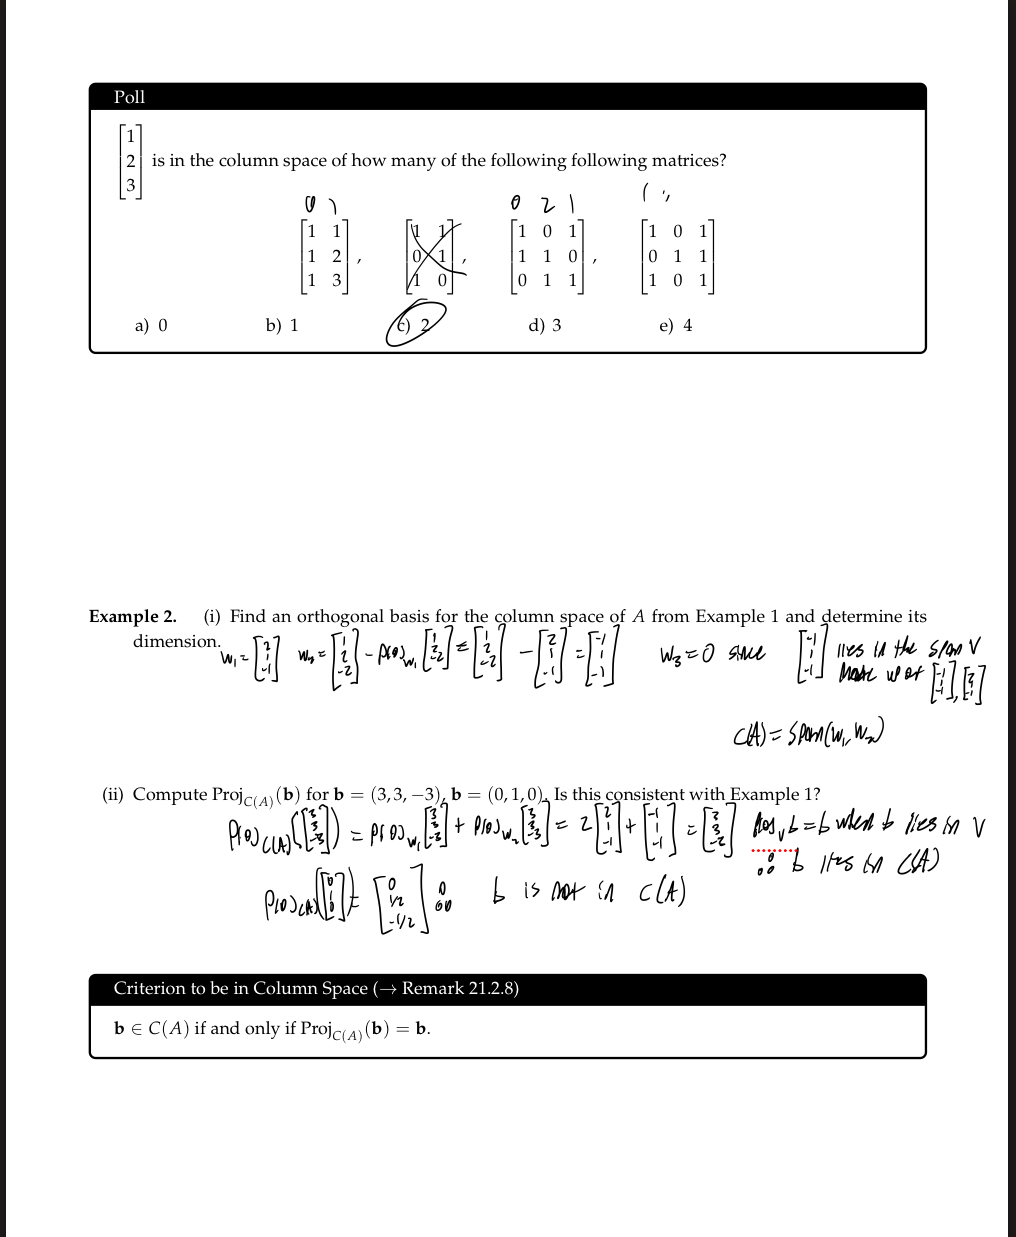 Poll
[1 2 3] is in the column space of how many of the following following matrices?
0 1 0 2 1
[1 1; 1 2; 1 3], [1 1; 0 1; 1 0], [1 0 1; 1 1 0; 0 1 1], [1 0 1; 0 1 1; 1 0 1]
a) 0 b) 1 c) 2 d) 3 e) 4
Example 2. (i) Find an orthogonal basis for the column space of A from Example 1 and determine its
dimension. w₁ = [2 1 -1] w₂ = [1 2 -2] - proj_w₁ [1 2 -2] = [1 2 -2] - [2 1 -1] = [-1 1 -1] w₃ = 0 since [-1 1 -1] lies in the span V
made up of [-1 1 -1], [2 1 -1]
C(A) = span(w₁, w₂)
(ii) Compute Proj_C(A)(b) for b = (3, 3, −3), b = (0, 1, 0). Is this consistent with Example 1?
Proj_C(A)([3 3 -3]) = Proj_w₁ [3 3 -3] + Proj_w₂ [3 3 -3] = 2 [2 1 -1] + [-1 1 -1] = [3 3 -2] b = b when b lies in V
∴ b lies in C(A)
Proj_C(A)([0 1 0]) = [0 1/2 -1/2] ∴ b is not in C(A)
Criterion to be in Column Space (→ Remark 21.2.8)
b ∈ C(A) if and only if Proj_C(A)(b) = b.